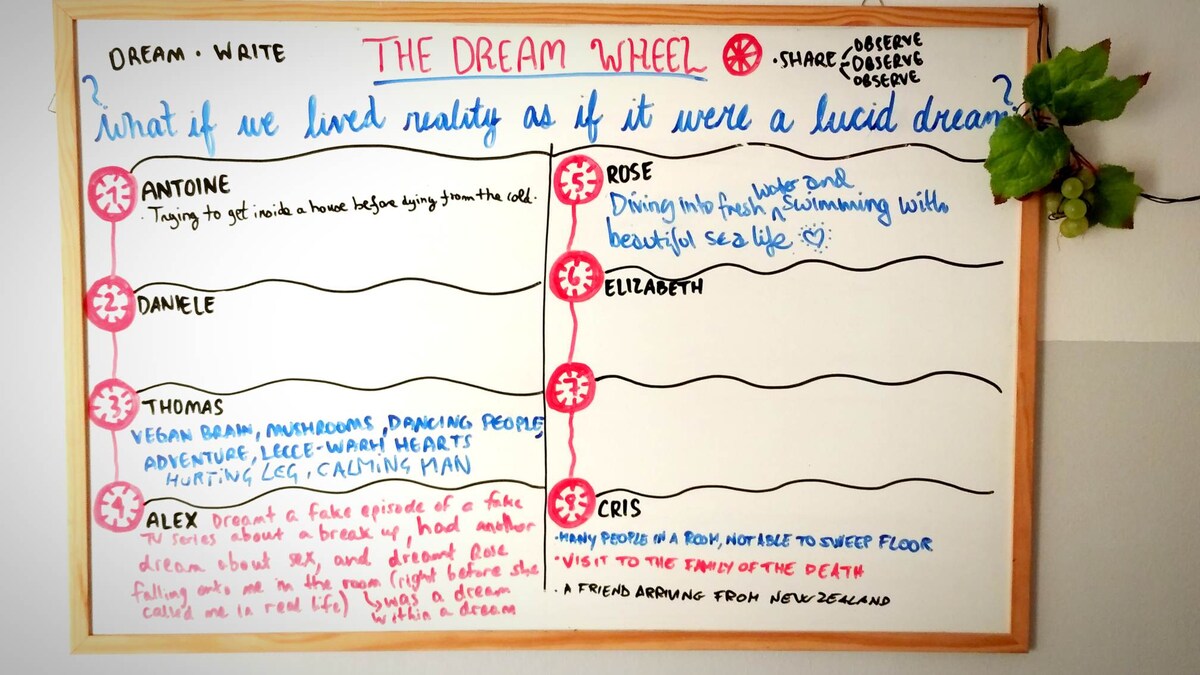 DREAM · WRITE
THE DREAM WHEEL
· SHARE
OBSERVE
OBSERVE
OBSERVE
? What if we lived reality as if it were a lucid dream ?
1 ANTOINE
· Trying to get inside a house before dying from the cold.
2 DANIELE
3 THOMAS
VEGAN BRAIN, MUSHROOMS, DANCING PEOPLE,
ADVENTURE, LECCE-WARM HEARTS
HURTING LEG, CALMING MAN
4 ALEX Dreamt a fake episode of a fake
TV series about a break up, had another
dream about sex, and dreamt Rose
falling onto me in the room (right before she
called me in real life) ↳ was a dream
within a dream
5 ROSE
Diving into fresh water and swimming with
beautiful sea life ♡
6 ELIZABETH
7
CRIS
· MANY PEOPLE IN A ROOM, NOT ABLE TO SWEEP FLOOR
· VISIT TO THE FAMILY OF THE DEATH
· A FRIEND ARRIVING FROM NEW ZEALAND